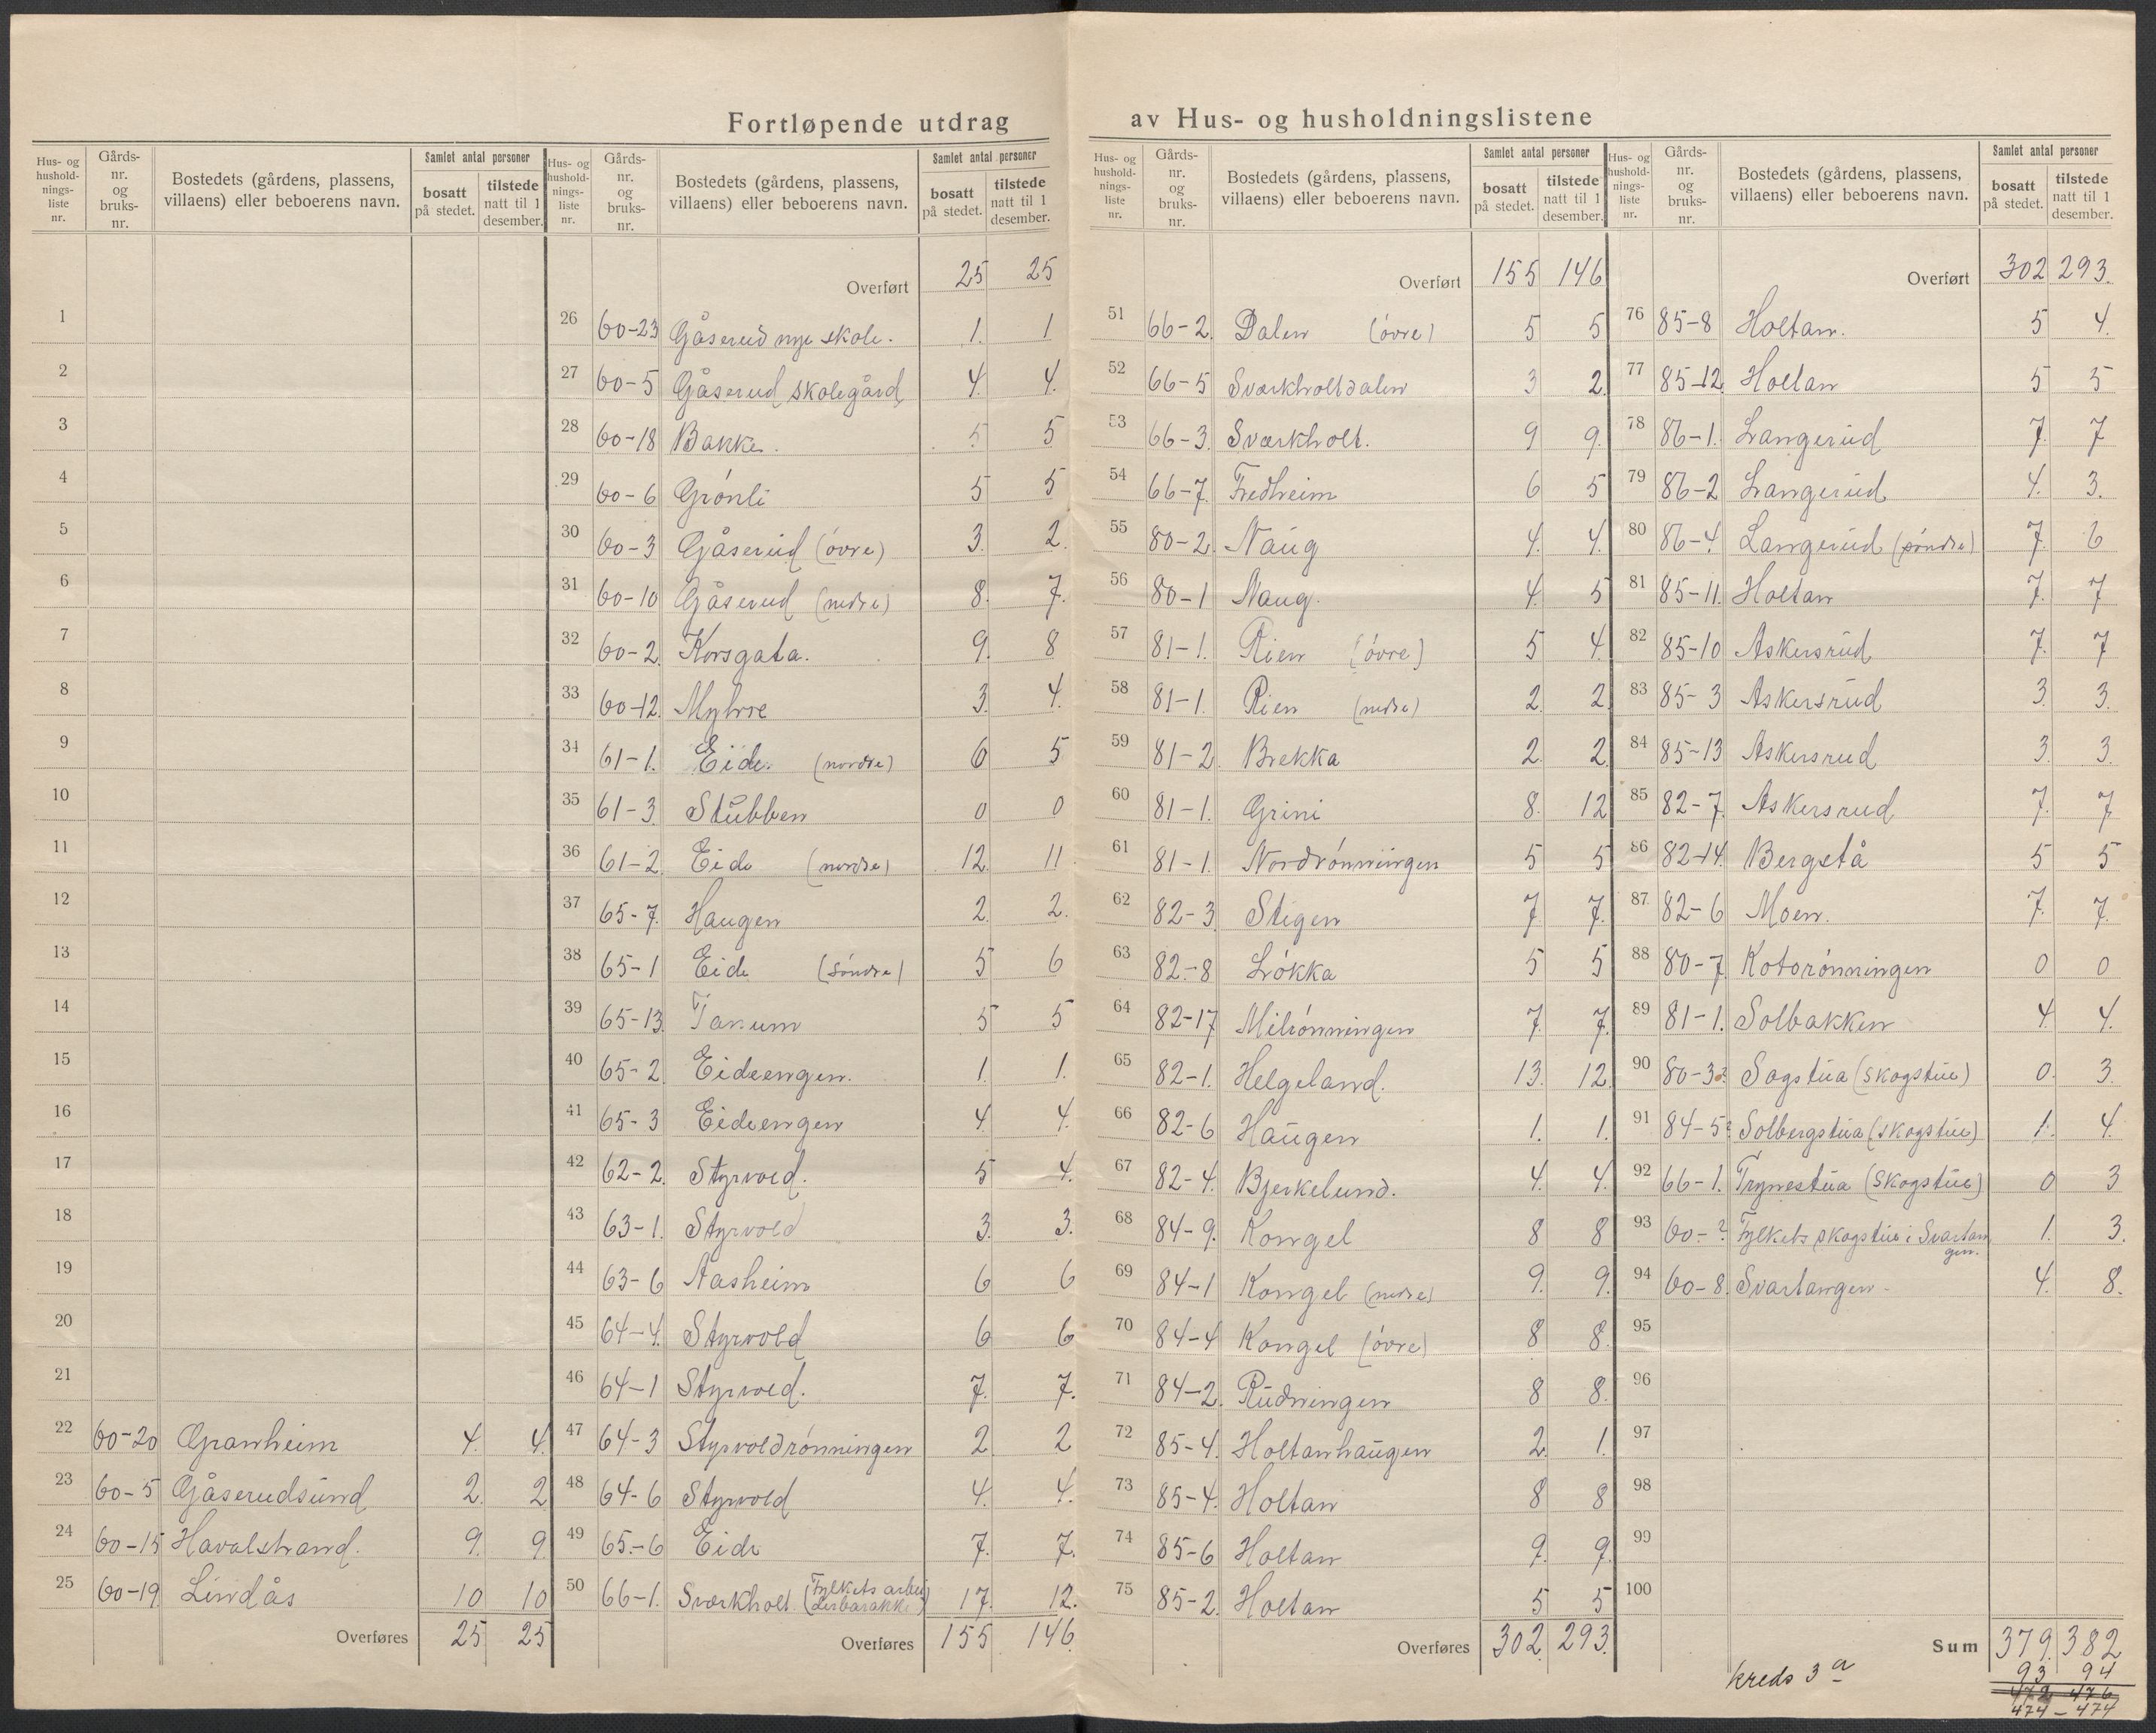 Fortløpende utdrag av Hus- og husholdningslistene
Hus- og hushold-nings-liste nr. | Gårds-nr. og bruks-nr. | Bostedets (gårdens, plassens, villaens) eller beboerens navn. | Samlet antal personer | bosatt på stedet. | tilstede natt til 1 desember.
1
2
3
4
5
6
7
8
9
10
11
12
13
14
15
16
17
18
19
20
21
22 60-20 Granheim 4. 4.
23 60-5 Gåserudsund 2. 2
24 60-15 Havalstrand. 9. 9
25 60-19 Lindås 10 10
Overføres 25 25
Hus- og hushold-nings-liste nr. | Gårds-nr. og bruks-nr. | Bostedets (gårdens, plassens, villaens) eller beboerens navn. | Samlet antal personer | bosatt på stedet. | tilstede natt til 1 desember.
Overført 25 25
26 60-23 Gåserud nye skole. 1. 1
27 60-5 Gåserud skolegård 4. 4.
28 60-18 Bakke. 5 5
29 60-6 Grónli 5 5
30 60-3 Gåserud (óvre) 3. 2.
31 60-10 Gåserud (nedre) 8. 7.
32 60-2. Korsgata. 9. 8
33 60-12. Myhre 3. 4.
34 61-1. Eide. (nordre) 6 5
35 61-3. Stubben 0 0
36 61-2. Eide (nordre) 12. 11
37 65-7. Haugen 2. 2.
38 65-1 Eide (sóndre) 5 6
39 65-13. Tanum 5 5
40 65-2 Eideengen. 1. 1.
41 65-3 Eideengen 4. 4.
42 62-2. Styrvold. 5 4.
43 63-1. Styrvold 3. 3.
44 63-6 Aasheim 6 6
45 64-4. Styrvold 6 6
46 64-1 Styrvold. 7. 7.
47 64-3 Styrvoldrónningen 2. 2
48 64-6 Styrvold 4. 4.
49 65-6 Eide 7. 7.
50 66-1. Sværkholt (Fylkets arbei derbarakke) 17. 12.
Overføres 155 146
Hus- og hushold-nings-liste nr. | Gårds-nr. og bruks-nr. | Bostedets (gårdens, plassens, villaens) eller beboerens navn. | Samlet antal personer | bosatt på stedet. | tilstede natt til 1 desember.
Overført 155 146
51 66-2. Dalen (óvre) 5 5
52 66-5 Sværkholtdalen 3 2.
53 66-3. Sværkholt. 9 9.
54 66-7. Fredheim 6 5
55 80-2. Naug 4. 4.
56 80-1 Naug. 4. 5
57 81-1. Rien (óvre) 5 4.
58 81-1. Rien (nedre) 2. 2.
59 81-2. Brekka 2. 2.
60 81-1. Grini 8. 12
61 81-1. Nordrónningen 5 5
62 82-3. Stigen 7. 7.
63 82-8 Lókka 5 5
64 82-17 Milrónningen 7. 7.
65 82-1. Helgeland. 13. 12.
66 82-6 Haugen 1. 1.
67 82-4. Bjerkelund. 4. 4.
68 84-9. Kongel 8 8
69 84-1 Kongel (nedre) 9. 9.
70 84-4 Kongel (óvre) 8 8.
71 84-2. Rudningen 8 8.
72 85-4. Holtanhaugen 2. 1.
73 85-4. Holtan 8 8
74 85-6 Holtan 9. 9.
75 85-2. Holtan 5 5
Overføres 302. 293.
Hus- og hushold-nings-liste nr. | Gårds-nr. og bruks-nr. | Bostedets (gårdens, plassens, villaens) eller beboerens navn. | Samlet antal personer | bosatt på stedet. | tilstede natt til 1 desember.
Overført 302 293.
76 85-8 Holtan. 5 4.
77 85-12. Holtan 5 5
78 86-1. Langerud 7. 7
79 86-2 Langerud 4. 3.
80 86-4. Langerud (søndre) 7. 6
81 85-11. Holtan 7. 7
82 85-10 Askersrud 7. 7
83 85-3 Askersrud 3. 3.
84 85-13 Askersrud 3. 3.
85 82-7. Askersrud 7. 7
86 82-14. Bergstå 5 5
87. 82-6 Moen. 7. 7.
88 80-7. Kotorónningen 0 0
89 81-1. Solbakken 4. 4.
90 80-3? Sagstua (skogstue) 0. 3.
91 84-5? Solbergstua (skogstue) 1. 4.
92 66-1. Trynestua (skogstue) 0 3
93 60-? Fylkets skogstue i Svartan gen. 1. 3.
94 60-8. Svartangen. 4. 8.
95
96
97
98
99
100
Sum 379. 382
93 94
472 476
474 - 474
Kreds 3 a